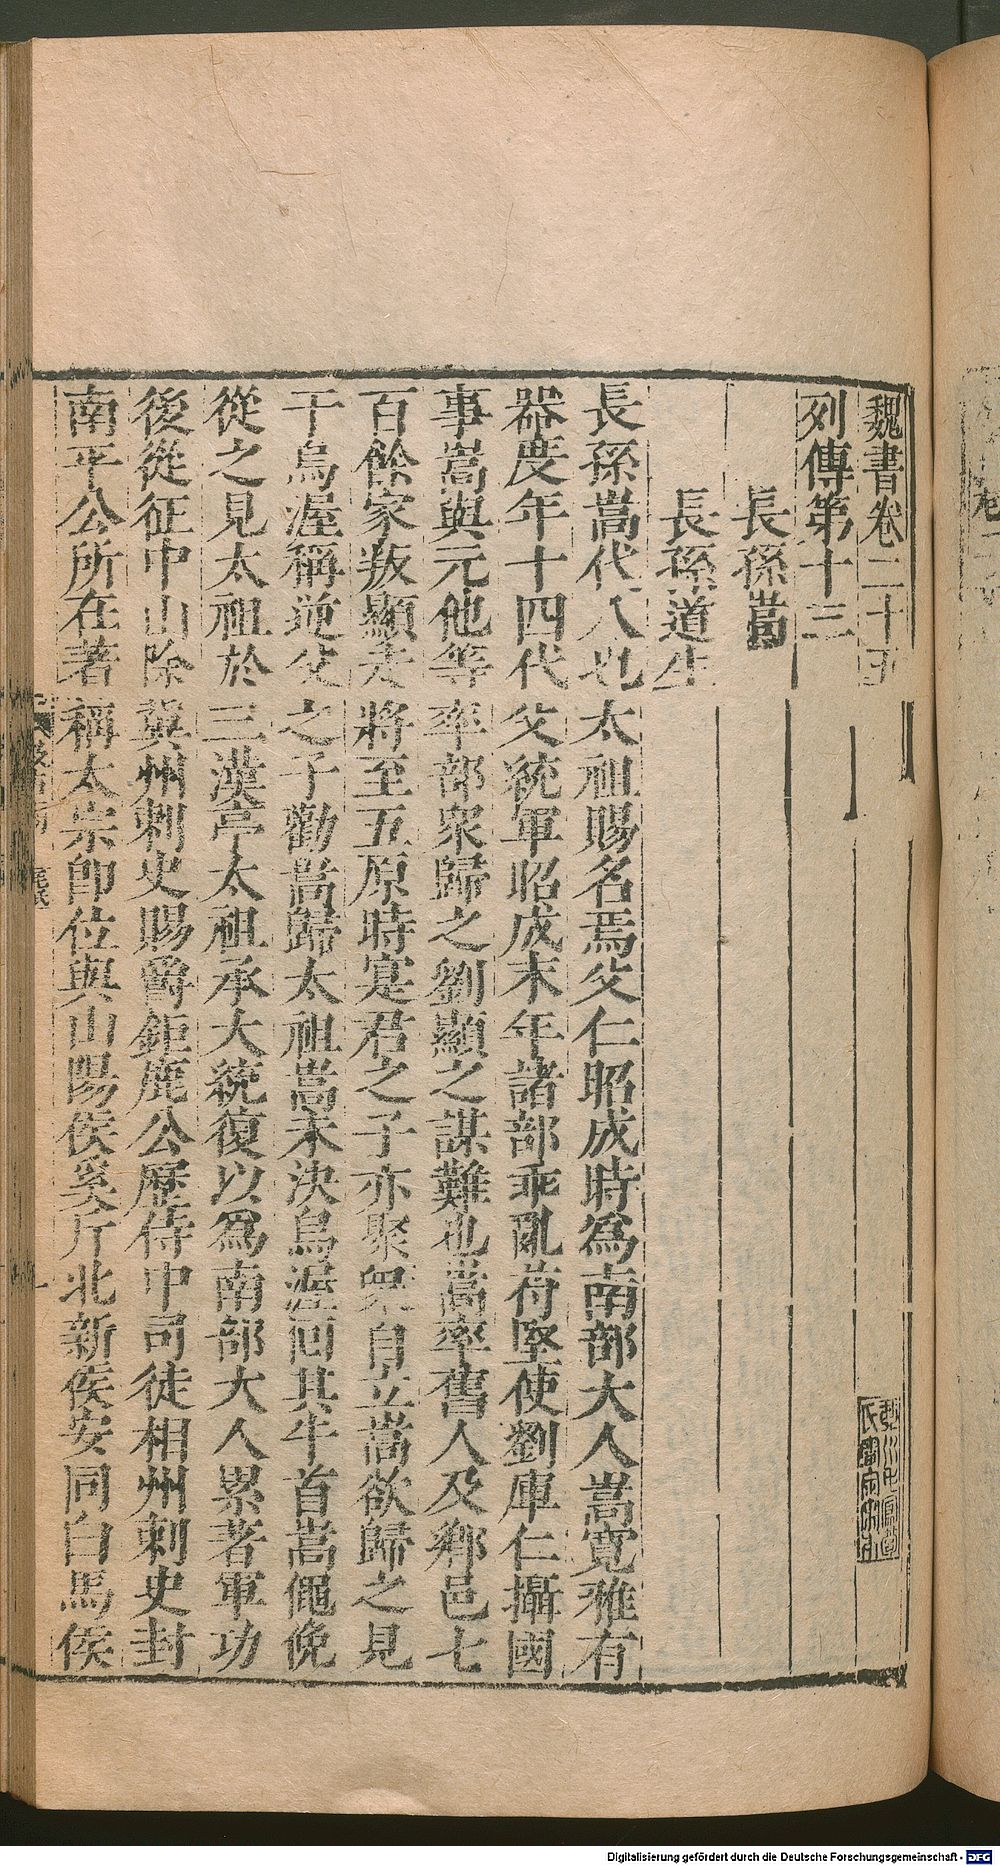 魏書卷二十五
列傳第十三
長孫嵩
長孫道生
長孫嵩代人也太祖賜名焉父仁昭成時爲南部大人嵩寬雅有
器度年十四代父統軍昭成末年諸部乖亂苻堅使劉庫仁攝國
事嵩與元他等率部衆歸之劉顯之謀難也嵩率舊人及鄉邑七
百餘家叛顯走將至五原時寔君之子亦聚衆自立嵩欲歸之見
于烏渥稱逆父之子勸嵩歸太祖嵩未決烏渥回其牛首嵩僶俛
從之見太祖於三漢亭太祖承大統復以爲南部大人累著軍功
後從征中山除冀州刺史賜爵鉅鹿公歷侍中司徒相州刺史封
南平公所在著稱太宗卽位與山陽侯奚斤北新侯安同白馬侯
Digitalisierung gefördert durch die Deutsche Forschungsgemeinschaft - DFG